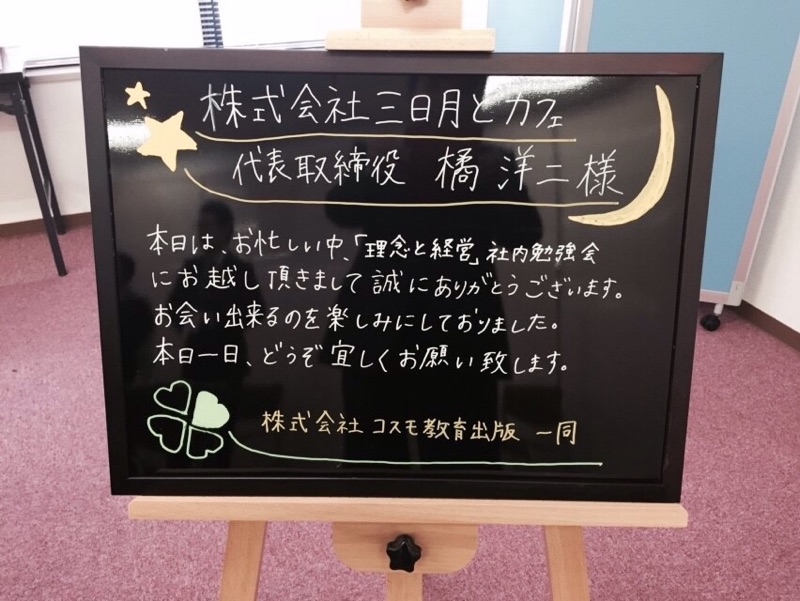 株式会社三日月とカフェ
代表取締役 橘 洋二様
本日は、お忙しい中、「理念と経営」社内勉強会
にお越し頂きまして誠にありがとうございます。
お会い出来るのを楽しみにしておりました。
本日一日、どうぞ宜しくお願い致します。
株式会社 コスモ教育出版 一同